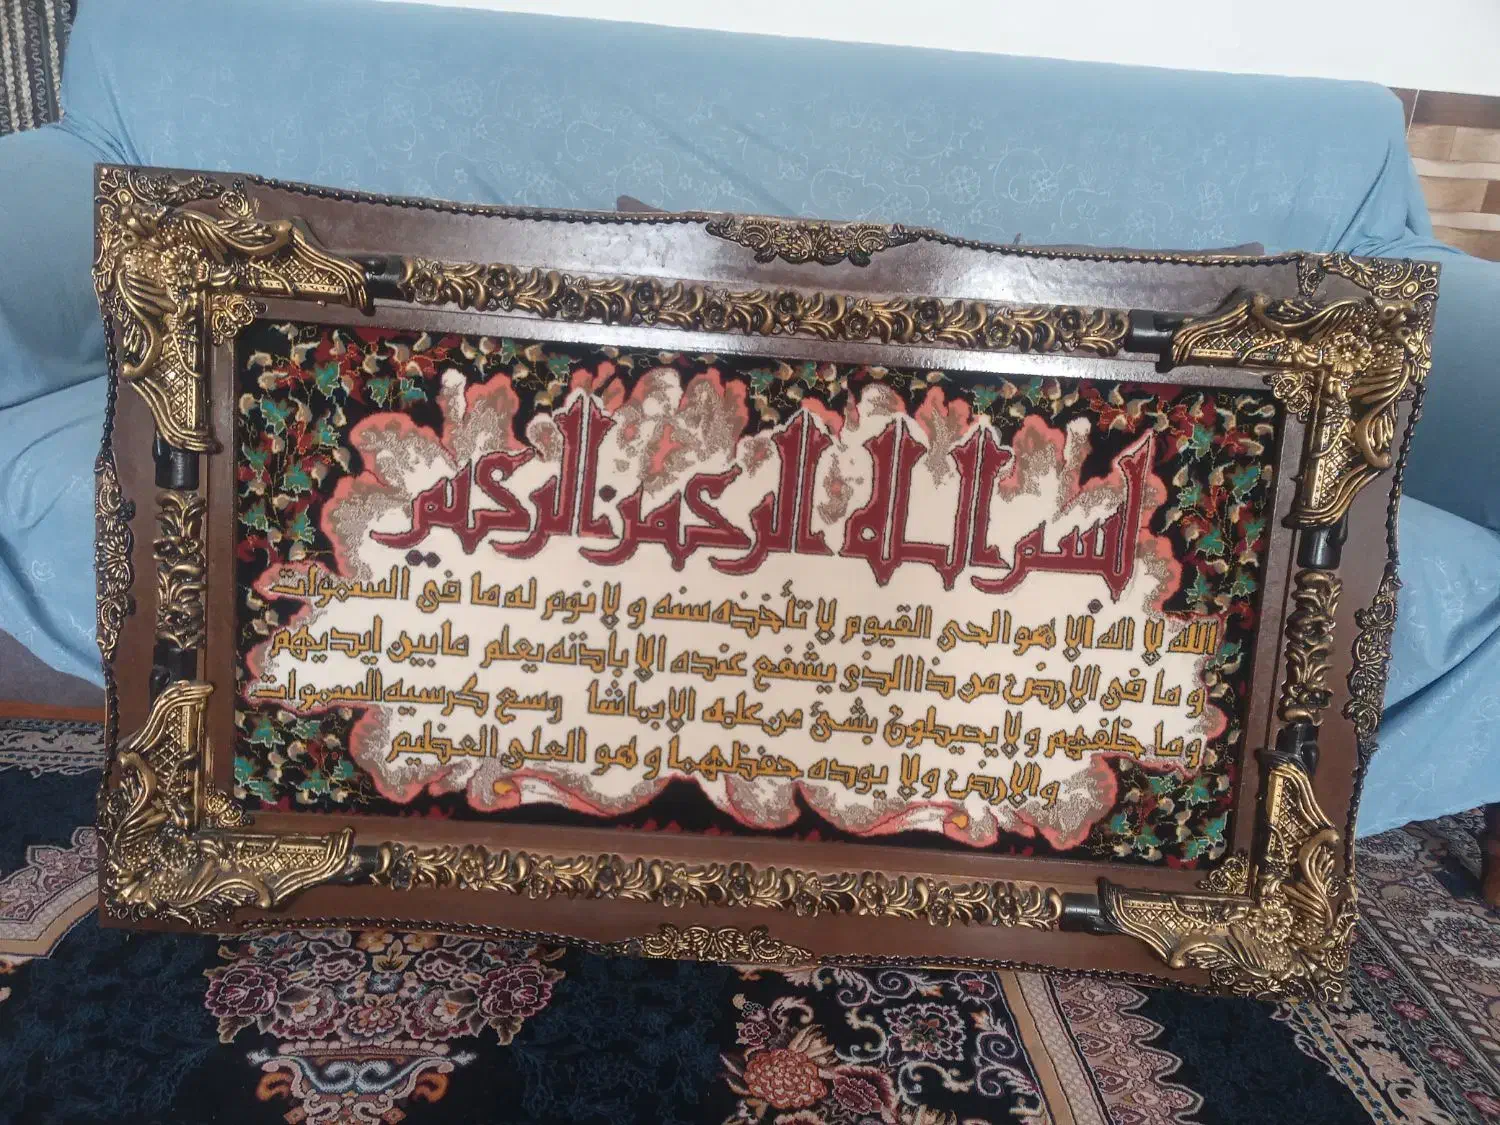 بسم الله الرحمن الرحیم
الله لا اله الا هو الحی القیوم لا تأخذه سنه و لا نوم له ما فی السموات
و ما فی الارض من ذا الذی یشفع عنده الا باذنه یعلم مابین ایدیهم
و ما خلفهم و لا یحیطون بشئ من علمه الا بماشا وسع کرسیه السموات
والارض ولا یوده حفظهما و هو العلی العظیم